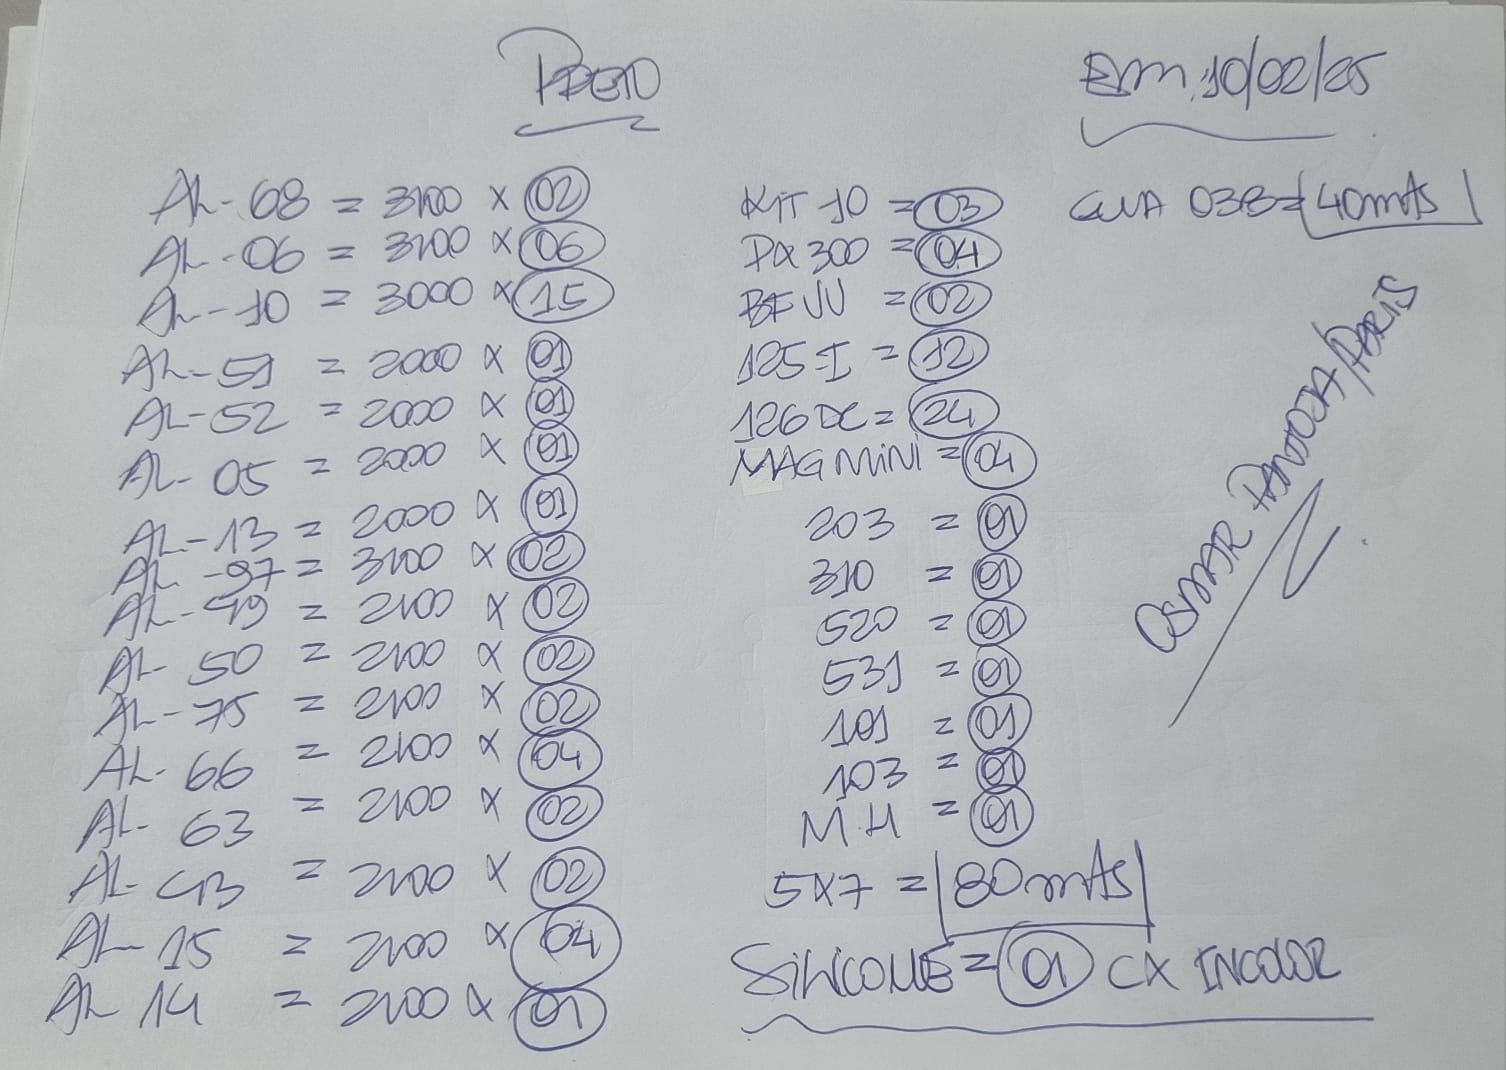 PRETO
Em. 10/02/25
AL-68 = 3100 x 02
AL-06 = 3100 x 06
AL-10 = 3000 x 15
AL-51 = 2000 x 01
AL-52 = 2000 x 01
AL-05 = 2000 x 01
AL-13 = 2000 x 01
AL-97 = 3100 x 02
AL-49 = 2100 x 02
AL-50 = 2100 x 02
AL-75 = 2100 x 02
AL-66 = 2100 x 04
AL-63 = 2100 x 02
AL-43 = 2100 x 02
AL-15 = 2100 x 04
AL 14 = 2100 x 01
KIT 10 = 03
PX 300 = 04
= 02
125-I = 12
126 DC = 24
MAG MINI = 04
203 = 01
310 = 01
520 = 01
531 = 01
101 = 01
103 = 01
M.H = 01
5x7 = 80mts
SILICONE = 01 CX INCOLOR
038 = 40mts
OSMAR PANTOJA/PARIS